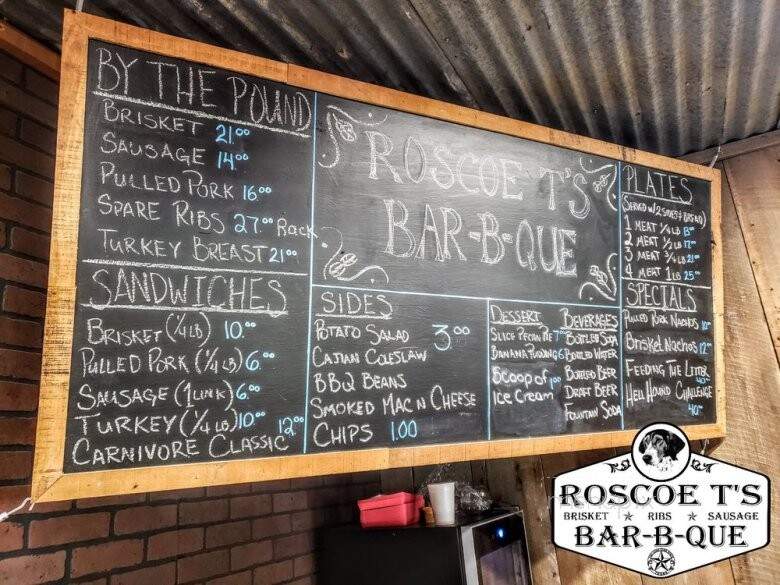 BY THE POUND
BRISKET 21.00
SAUSAGE 14.00
PULLED PORK 16.00
SPARE RIBS 27.00 Rack
TURKEY BREAST 21.00
SANDWICHES
BRISKET (1/4 LB) 10.00
PULLED PORK (1/4 LB) 6.00
SAUSAGE (1 LINK) 6.00
TURKEY (1/4 LB) 10.00
CARNIVORE CLASSIC 12.00
ROSCOE T'S
BAR-B-QUE
SIDES
POTATO SALAD 3.00
CAJUN COLESLAW
BBQ BEANS
SMOKED MAC N CHEESE
CHIPS 1.00
DESSERT
SLICE PECAN PIE 7
BANANA PUDDING 6
Scoop of 1.00
Ice Cream
BEVERAGES
BOTTLED SODA
BOTTLED WATER
BOTTLED BEER
DRAFT BEER
FOUNTAIN SODA
PLATES
(SERVED W/2 SIDES & BREAD)
1 MEAT 1/4 LB
2 MEAT 1/2 LB 17.00
3 MEAT 3/4 LB 21.00
4 MEAT 1 LB 25.00
SPECIALS
PULLED PORK NACHOS 10
BRISKET NACHOS 12
FEEDING THE LITTER
HELL HOUND CHALLENGE
40.00
ROSCOE T'S
BRISKET ★ RIBS ★ SAUSAGE
BAR-B-QUE